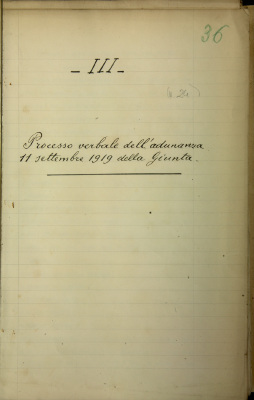 36
- III -
Processo verbale dell'adunanza
11 settembre 1919 della Giunta.